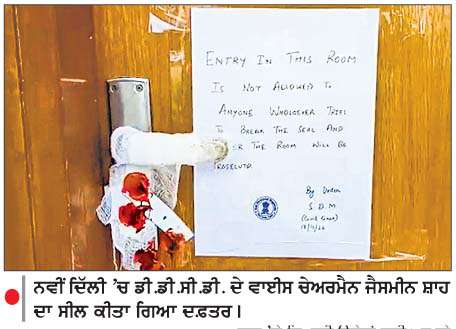 ENTRY IN THIS ROOM
IS NOT ALLOWED TO
ANYONE WHOSOEVER TRIES
TO BREAK THE SEAL AND
THE ROOM WILL BE
By Order
S D M
ਨਵੀਂ ਦਿੱਲੀ ’ਚ ਡੀ.ਡੀ.ਸੀ.ਡੀ. ਦੇ ਵਾਈਸ ਚੇਅਰਮੈਨ ਜੈਸਮੀਨ ਸ਼ਾਹ
ਦਾ ਸੀਲ ਕੀਤਾ ਗਿਆ ਦਫ਼ਤਰ।